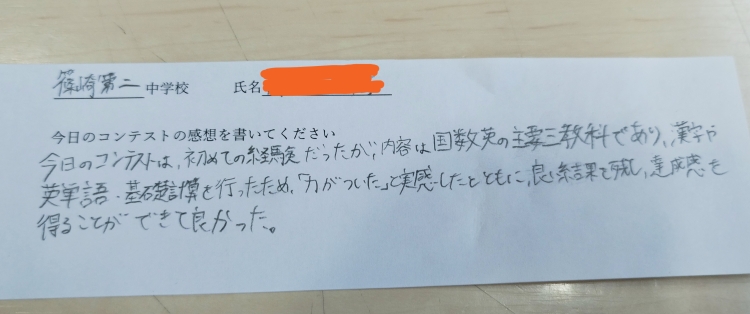 篠崎第二中学校 氏名
今日のコンテストの感想を書いてください
今日のコンテストは、初めての経験だったが、内容は国数英の主要三教科であり、漢字や
英単語・基礎計算を行ったため、「力がついた」と実感したとともに、良い結果を残し、達成感も
得ることができて良かった。